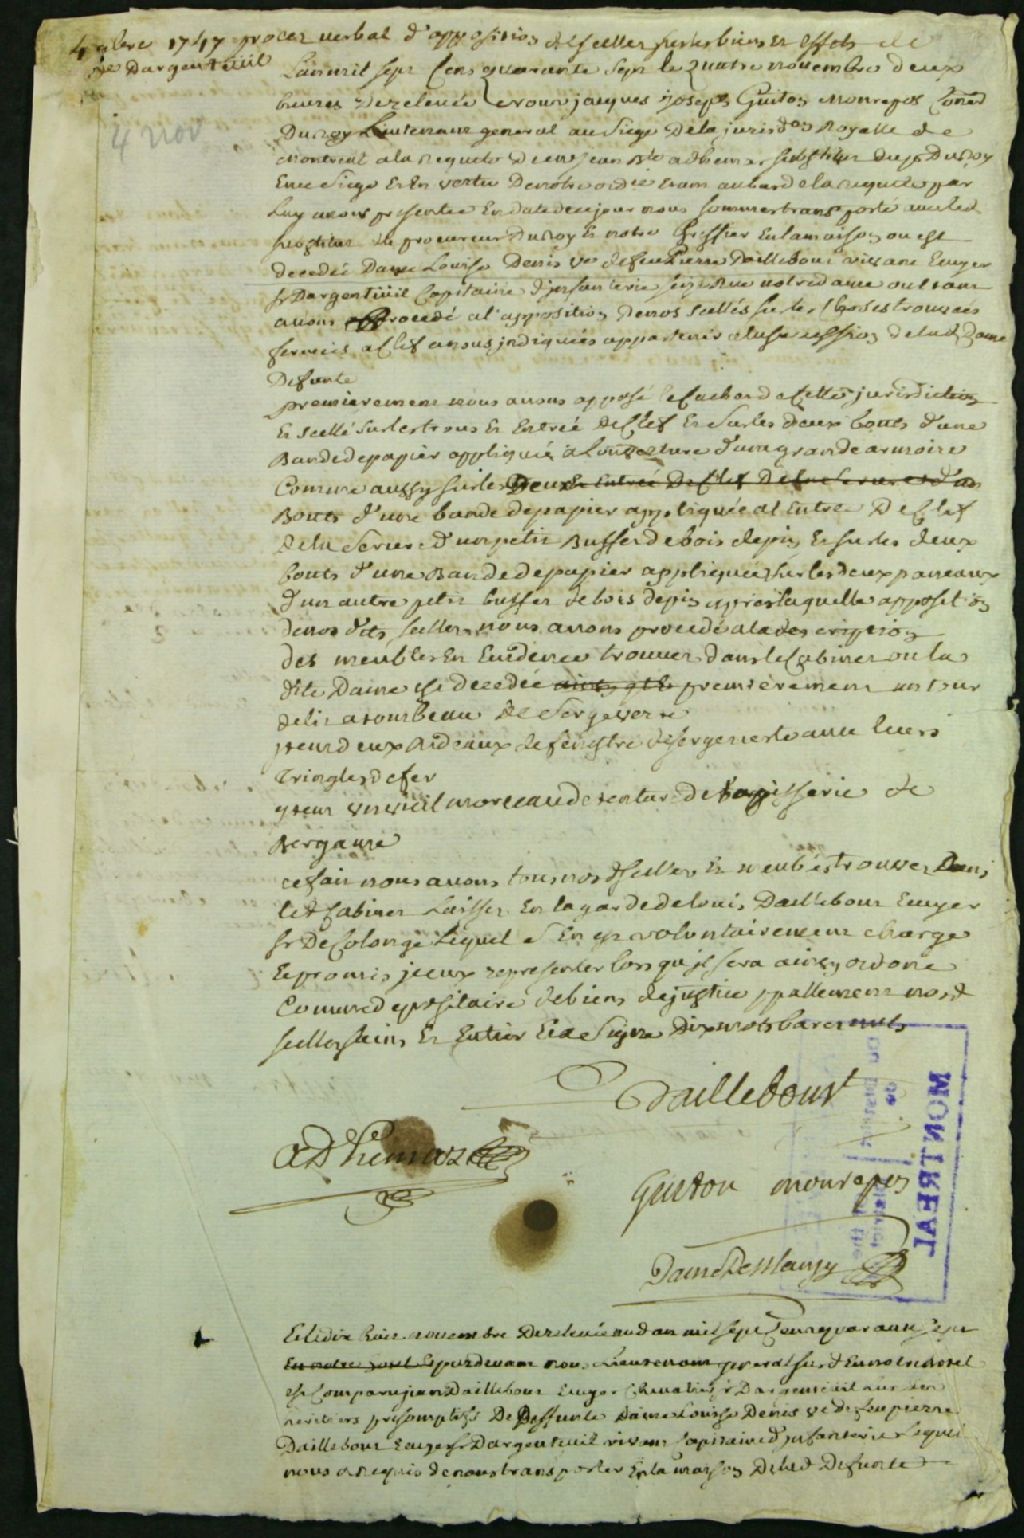 4 9bre 1747 procez verbal d'apposition de scellez sur les biens et effets de
Me Dargenteüil
4 nov
Lan mil sept Cens quarante sept le Quatre novembre deux
heures de relevée nous jacques joseph Guiton Monrepos Coner
Du Roy Lieutenant general au Siege de la jurisdon Royalle de
Montreal a la Requete de me jean Bte adhemar substitut du pr Du Roy
En ce Siege Et En vertu De notre ordce etant au bas de la requete par
Luy a nous presentée En datte de ce jour nous sommes transporté avec led
substitut du procureur Du Roy Et notre Greffier En la maison ou est
decedée Dame Louise Denis ve de feu Pierre Dailleboust vivant Ecuyer
sr Dargenteüil Capitaine d'jnfanterie scize Rue notre dame ou etant
avons procedé a l'apposition De nos scellés sur les Choses trouvées
fermées a Clef a nous jndiquées appartenir a la succession de lad. Dame
Defunte
premierement nous avons apposé le Cachet de Cette jurisdiction
Et scellé sur les trous Et Entrée de Clef Et sur les deux bouts d'une
Bande de papier appliquée a Louverture d'une grande armoire
Comme aussy sur les Deux Entrée De Clef De la Serrure d'un
Bouts d'une bande de papier appliquée a L'Entrée De Clef
de la Serrure d'un petit Buffet de bois de pin Et sur les deux
bouts d'une Bande de papier appliquée sur les deux paneaux
d'un autre petit buffet de bois de pin apres laquelle apposition
de nos dits scellez nous avons procedé a la description
des meubles En Evidence trouvez dans le Cabinet ou la
dite Dame est decedée premierement un tour
de lit a tombeau de serge verte
jtem deux Rideaux de fenestre de serge verte avec leurs
tringles de fer
jtem un vieil morceau de tenture de tapisserie de
Bergame
ce fait nous avons tous nos d. scellez Et meubles trouvez Dans
led Cabinet Laissez En la garde de Louis Dailleboust Ecuyer
sr De Colonge Lequel s'En est volontairement chargé
Et promis jceux representer lors qu'il sera ainsy ordoné
Comme depositaire de biens de justice ppallement nosd
scellez sains Et Entier Et a Signé Dix mots barez nuls
Dailleboust
Adhemar
Guiton monrepos
Danré De Blanzy
MONTREAL
Et le dix huit novembre De relevée aud an mil sept Cens quarante sept
pardevant nous Lieutenant general susd En notre hotel
est Comparu jean Dailleboust Ecuyer Chevalier sr Dargenteüil
heritiers presomptifs De Deffunte Dame Louise Denis ve de feu pierre
Dailleboust Ecuyer sr Dargenteuil vivant Capitaine d'jnfanterie Lequel
nous a Requis de nous transporter En la maison De lad Defunte